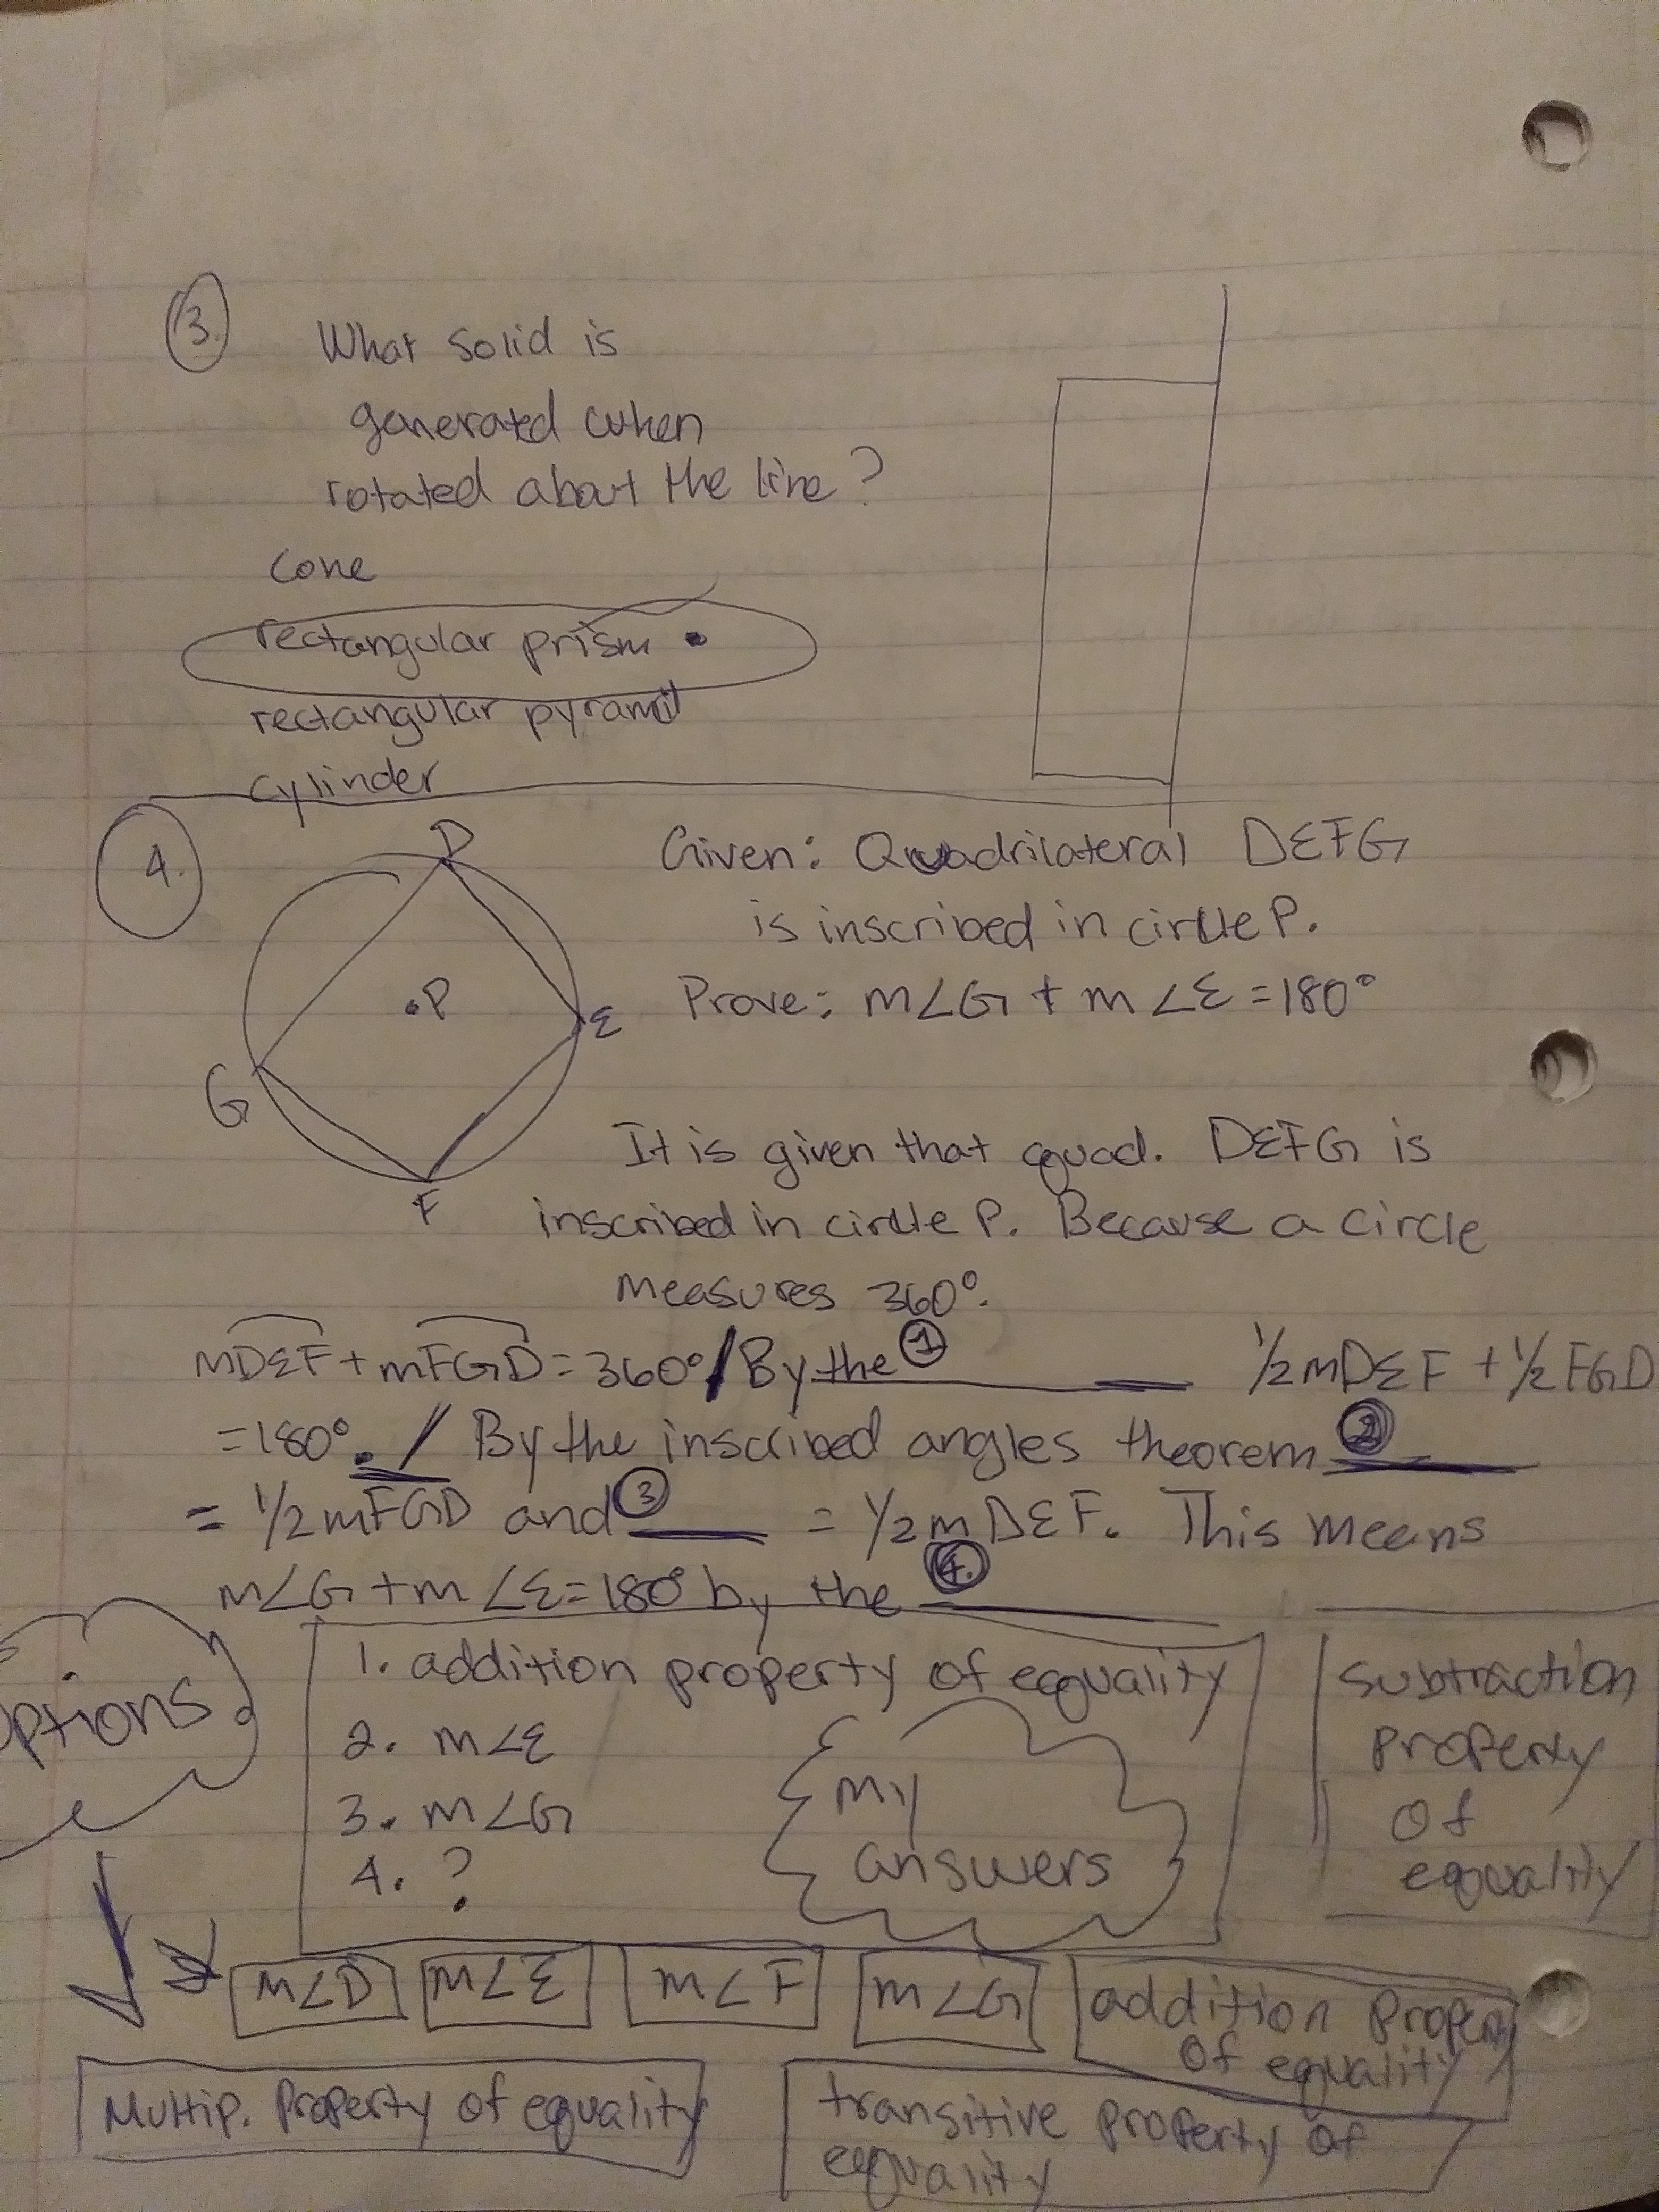 3.
What solid is
generated when
rotated about the line?
cone
rectangular prism
rectangular pyramid
cylinder
4.
D
P
E
G
F
Given: Quadrilateral DEFG
is inscribed in circle P.
Prove: m∠G + m∠E = 180°
It is given that quad. DEFG is
inscribed in circle P. Because a circle
measures 360°.
mDEF + mFGD = 360° / By the ① ____ 1/2 mDEF + 1/2 FGD
= 180°. / By the inscribed angles theorem ② ____
= 1/2 mFGD and ③ ____ = 1/2 m DEF. This means
m∠G + m∠E = 180° by the ④. ____
options
1. addition property of equality
2. m∠E
3. m∠G
4. ?
my
answers
subtraction
property
of
equality
m∠D m∠E m∠F m∠G addition Property
of equality
Multip. Property of equality
transitive property of
equality